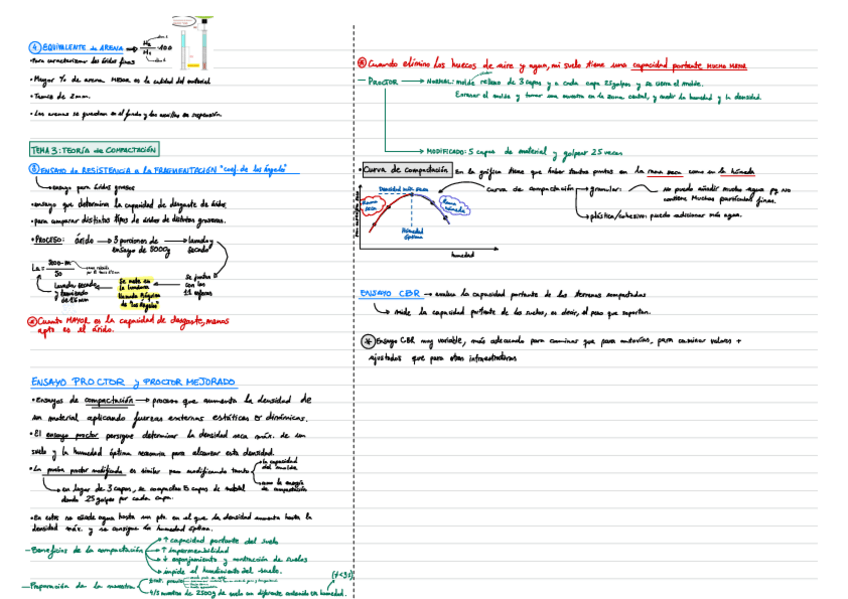 ④ EQUIVALENTE de ARENA → H₂/H₁ · 100
• Para caracterizar los áridos finos
• Mayor % de arena MEJOR es la calidad del material
• Tamiz de 2mm.
• Las arenas se quedan en el fondo y las arcillas en suspensión
TEMA 3: TEORÍA de COMPACTACIÓN
⑤ ENSAYO de RESISTENCIA a la FRAGMENTACIÓN "coef. de los Ángeles"
ensayo para áridos gruesos
• ensayo que determina la capacidad de desgaste de árido
• para comparar distintos tipos de áridos de distintas graveras.
• PROCESO: árido → 3 porciones de ensayo de 5000g → lavado y secado
Se juntan con las 11 esferas
Se mete en la
llamada Máquina de "los Ángeles"
Lavado secado y tamizado de 1.6 mm
LA =
50
Cuanto MAYOR es la capacidad de desgaste, menos
apto es el árido.
ENSAYO PROCTOR y PROCTOR MEJORADO
• Ensayos de compactación → proceso que aumenta la densidad de
un material aplicando fuerzas externas estáticas o dinámicas.
• El ensayo proctor persigue determinar la densidad seca máx. de un
suelo y la humedad óptima necesaria para alcanzar esta densidad.
• La prueba proctor modificado es similar pero modificando tanto
la capacidad del molde
como la energía de compactación
en lugar de 3 capas, se compactan 5 capas de material
dando 25 golpes por cada capa.
• En estos se añade agua hasta un pto. en el que la densidad aumenta hasta la
densidad máx. y se consigue la humedad óptima.
- Beneficios de la compactación
↑ capacidad portante del suelo
↑ impermeabilidad
↓ esponjamiento y contracción de suelos
impide el hundimiento del suelo.
- Preparación de la muestra
4/5 muestras de 2500g de suelo con diferente contenido en humedad.
Cuando elimino los huecos de aire y agua, mi suelo tiene una capacidad portante MUCHO MAYOR
- PROCTOR → NORMAL: molde relleno de 3 capas y a cada capa 25 golpes y se cierra el molde.
Enrasar el molde y tomar una muestra en la zona central, y medir la humedad y la densidad.
MODIFICADO: 5 capas de material y golpear 25 veces
• Curva de compactación En la gráfica tiene que haber tantos puntos en la rama seca como en la húmeda
Densidad máx seca
Rama seca
Rama húmeda
Humedad óptima
humedad
Curva de compactación
granular: no puedo añadir mucha agua pq no
contiene muchas partículas finas.
plástica/cohesiva: puedo adicionar más agua.
ENSAYO CBR → evalua la capacidad portante de los terrenos compactados
mide la capacidad portante de los suelos, es decir, el peso que soportan.
Ensayo CBR muy variable, más adecuado para caminos que para autovías, para caminos valores +
ajustados que para otras infraestructuras